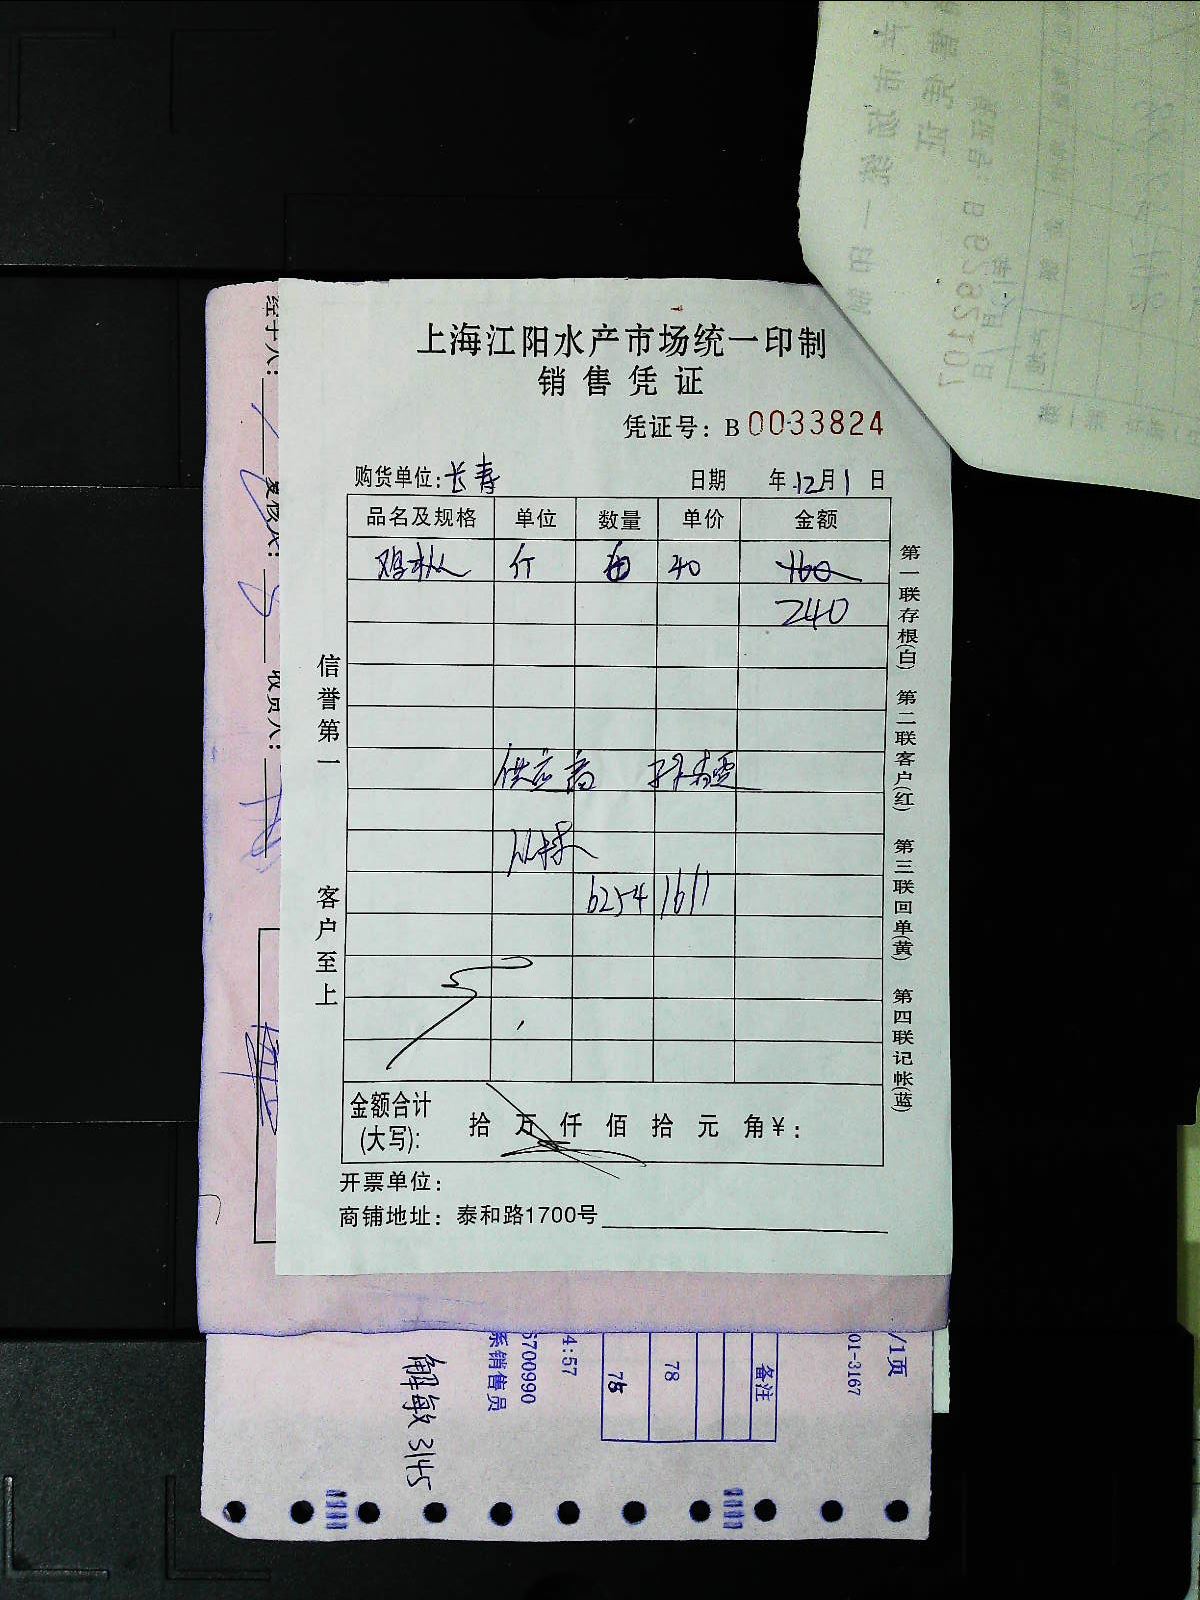 上海江阳水产市场统一印制
销售凭证
凭证号：B 0033824
购货单位：长寿 日期 年12月1日
品名及规格 单位 数量 单价 金额
鸡枞 斤 40 160
240
供应商
62541611
金额合计(大写)： 拾 万 仟 佰 拾 元 角 ¥：
开票单位：
商铺地址：泰和路1700号
信誉第一 客户至上
第一联存根(白) 第二联客户(红) 第三联回单(黄) 第四联记帐(蓝)
经手人：
复核人：
收货人：
/1页
01-3167
备注
78
78
4:57
6700990
系销售员
解敏 3145